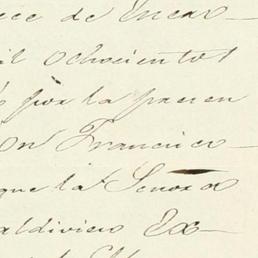 ece de Encar
il ochocientos
por la presen
on Francisco
que la Senora
aldiviero Ex-